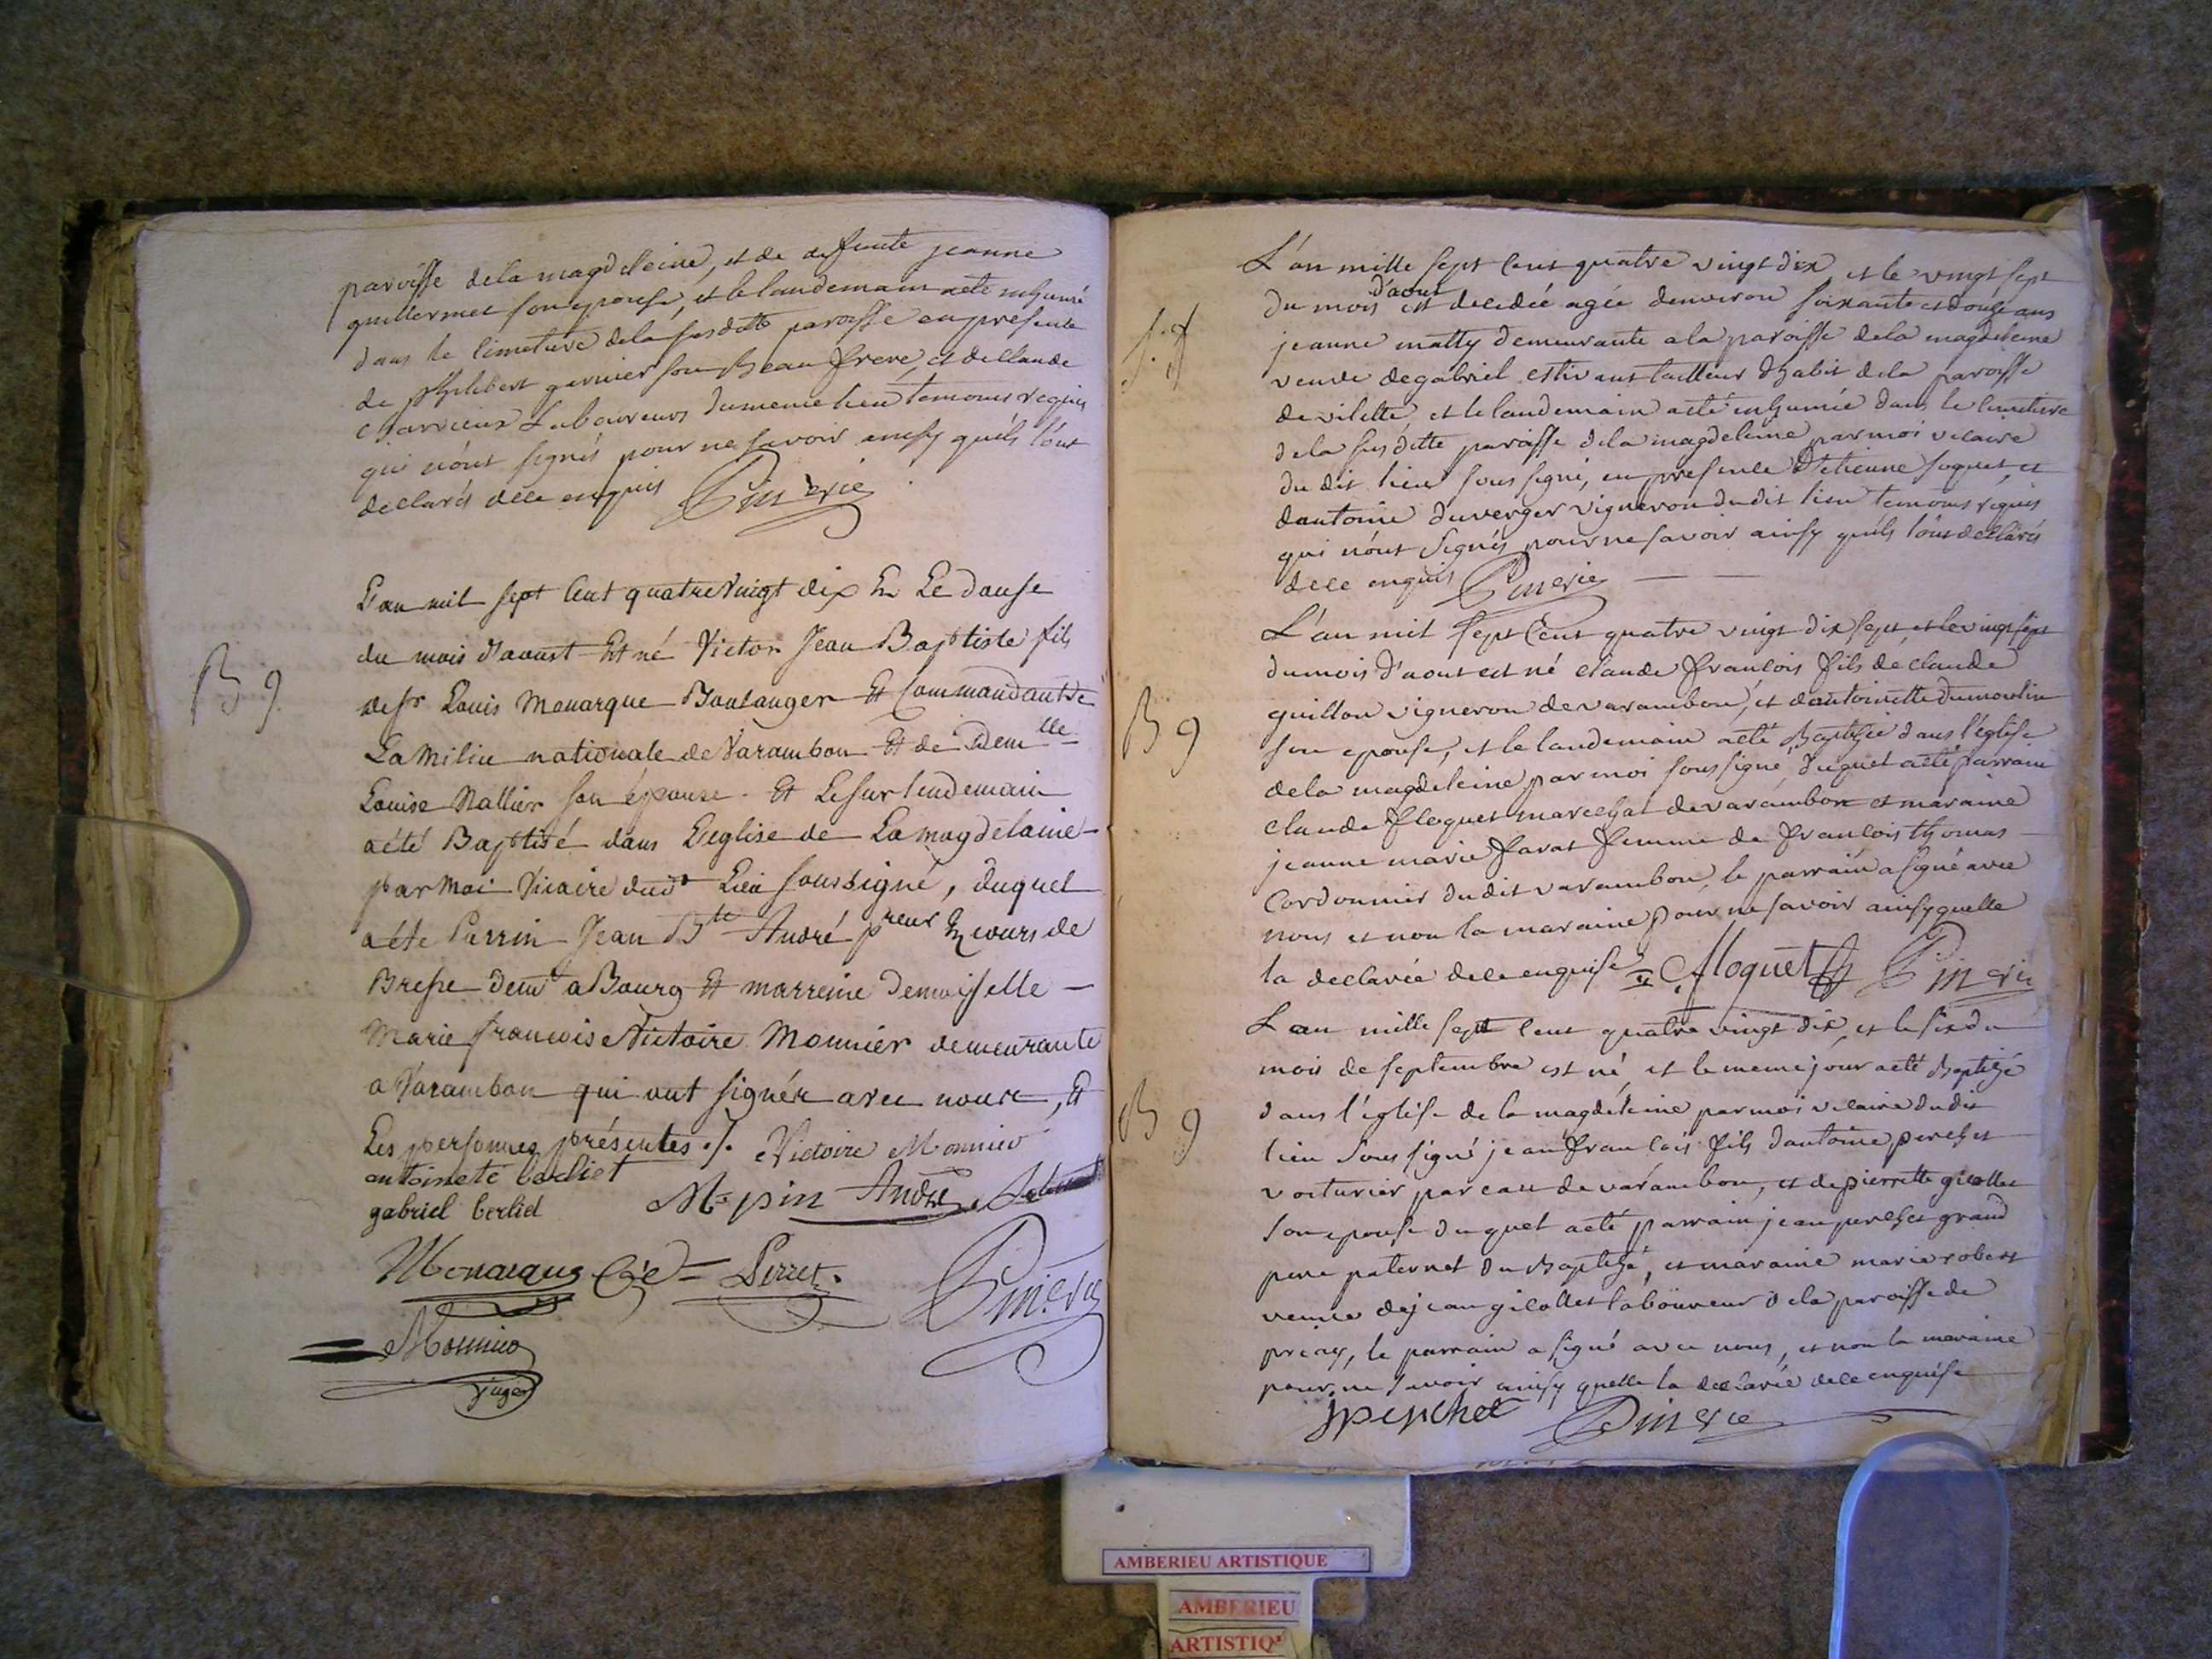 paroisse de la magdeleine, et de deffunte jeanne
guillermet son epouse, et le landemain a eté inhumé
dans le cimetiere de la susditte paroisse en presence
de philibert garnier son Beau frere, et de Claude
charvieux Laboureurs du meme lieu temoins requis
qui n'ont signés pour ne savoir ainsy quils l'ont
declarés de ce enquis Pinerie
L'an mil sept Cent quatre Vingt dix Et Le douse
du mois d'aoust Et né Victor Jean Baptiste fils
de sr Louis Monarque Boulanger Et Commandant de
La Milice nationale de Varambon Et de Demlle
Louise Nallier son épouse. Et Le surlendemain
a été Baptisé dans L'eglise de La magdelaine
par Moi Vicaire dudt Lieu soussigné, duquel
a été Parrin Jean Bte André preur En cours de
Bresse demt a Bourg Et marreine Demoiselle
Marie francoise Victoire Monnier demeurante
a Varambon qui ont signér avec nous, Et
Les personnes présentes ./. Victoire Monnier
antoinete berliet
gabriel berliet M pin André
Monarque Perret Pinerie
Monnier
juge
B 9
L'an mille sept Cent quatre vingt dix et le vingt sept
du mois d'aout est decedée agée denviron soixante et douze ans
jeanne matty demeurante a la paroisse de la magdeleine
veuve de gabriel estivant tailleur dhabit de la paroisse
de vilette et le landemain a eté inhumée dans le cimetiere
de la susditte paroisse de la magdeleine par moi vicaire
du dit lieu soussigné, en presence d'etienne foquet, et
dantoine duverger vigneron du dit lieu temoins requis
qui n'ont signés pour ne savoir ainsy quils l'ont declarés
de ce enquis Pinerie
L'an mil sept Cent quatre vingt dix sept et le vingt sept
du mois d'aout est né claude francois fils de claude
guillon vigneron de varambon, et dantoinette dumoulin
son epouse, et le landemain a eté Baptizée dans l'église
de la magdeleine par moi soussigné, duquel a eté parrain
claude floquet marechal de varambon et maraine
jeanne marie farat femme de francois thomas
Cordonnier dudit varambon, le parrain a signé avec
nous et non la maraine pour ne savoir ainsy quelle
la declarée de ce enquise Cfloquet Pinerie
L'an mille sept cent quatre vingt dix, et le six du
mois de septembre est né et le meme jour a eté Baptizé
dans l'église de la magdeleine par moi vicaire dudit
lieu soussigné jean francois fils dantoine perchet
voiturier par eau de varambon, et de pierrette gicollet
son epouse duquel a eté parrain jean perchet grand
pere paternel du Baptizé, et maraine marie robert
veuve de jean gicollet laboureur de la paroisse de
priay, le parrain a signé avec nous, et non la maraine
pour ne savoir ainsy quelle la declarée de ce enquise
jperchet Pinerie
B 9
B 9
AMBERIEU ARTISTIQUE
AMBERIEU
ARTISTIQ